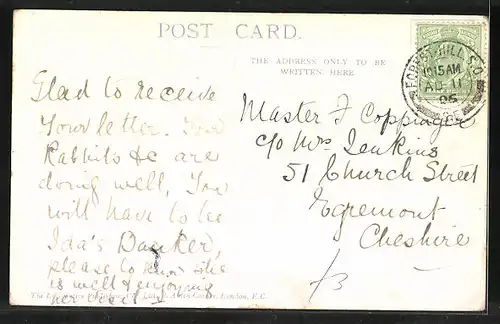 POST CARD.
THE ADDRESS ONLY TO BE
WRITTEN HERE
FOREST HILL S.O
10 15 AM
AU 11
06
Glad to receive
Your letter. Your
Rabbits &c are
doing well, You
will have to be
Ida's Banker,
please to know she
is well & enjoying
her
Master F Coppinger
c/o Mrs Jenkins
51 Church Street
Egremont
Cheshire
/3
The London, E.C.